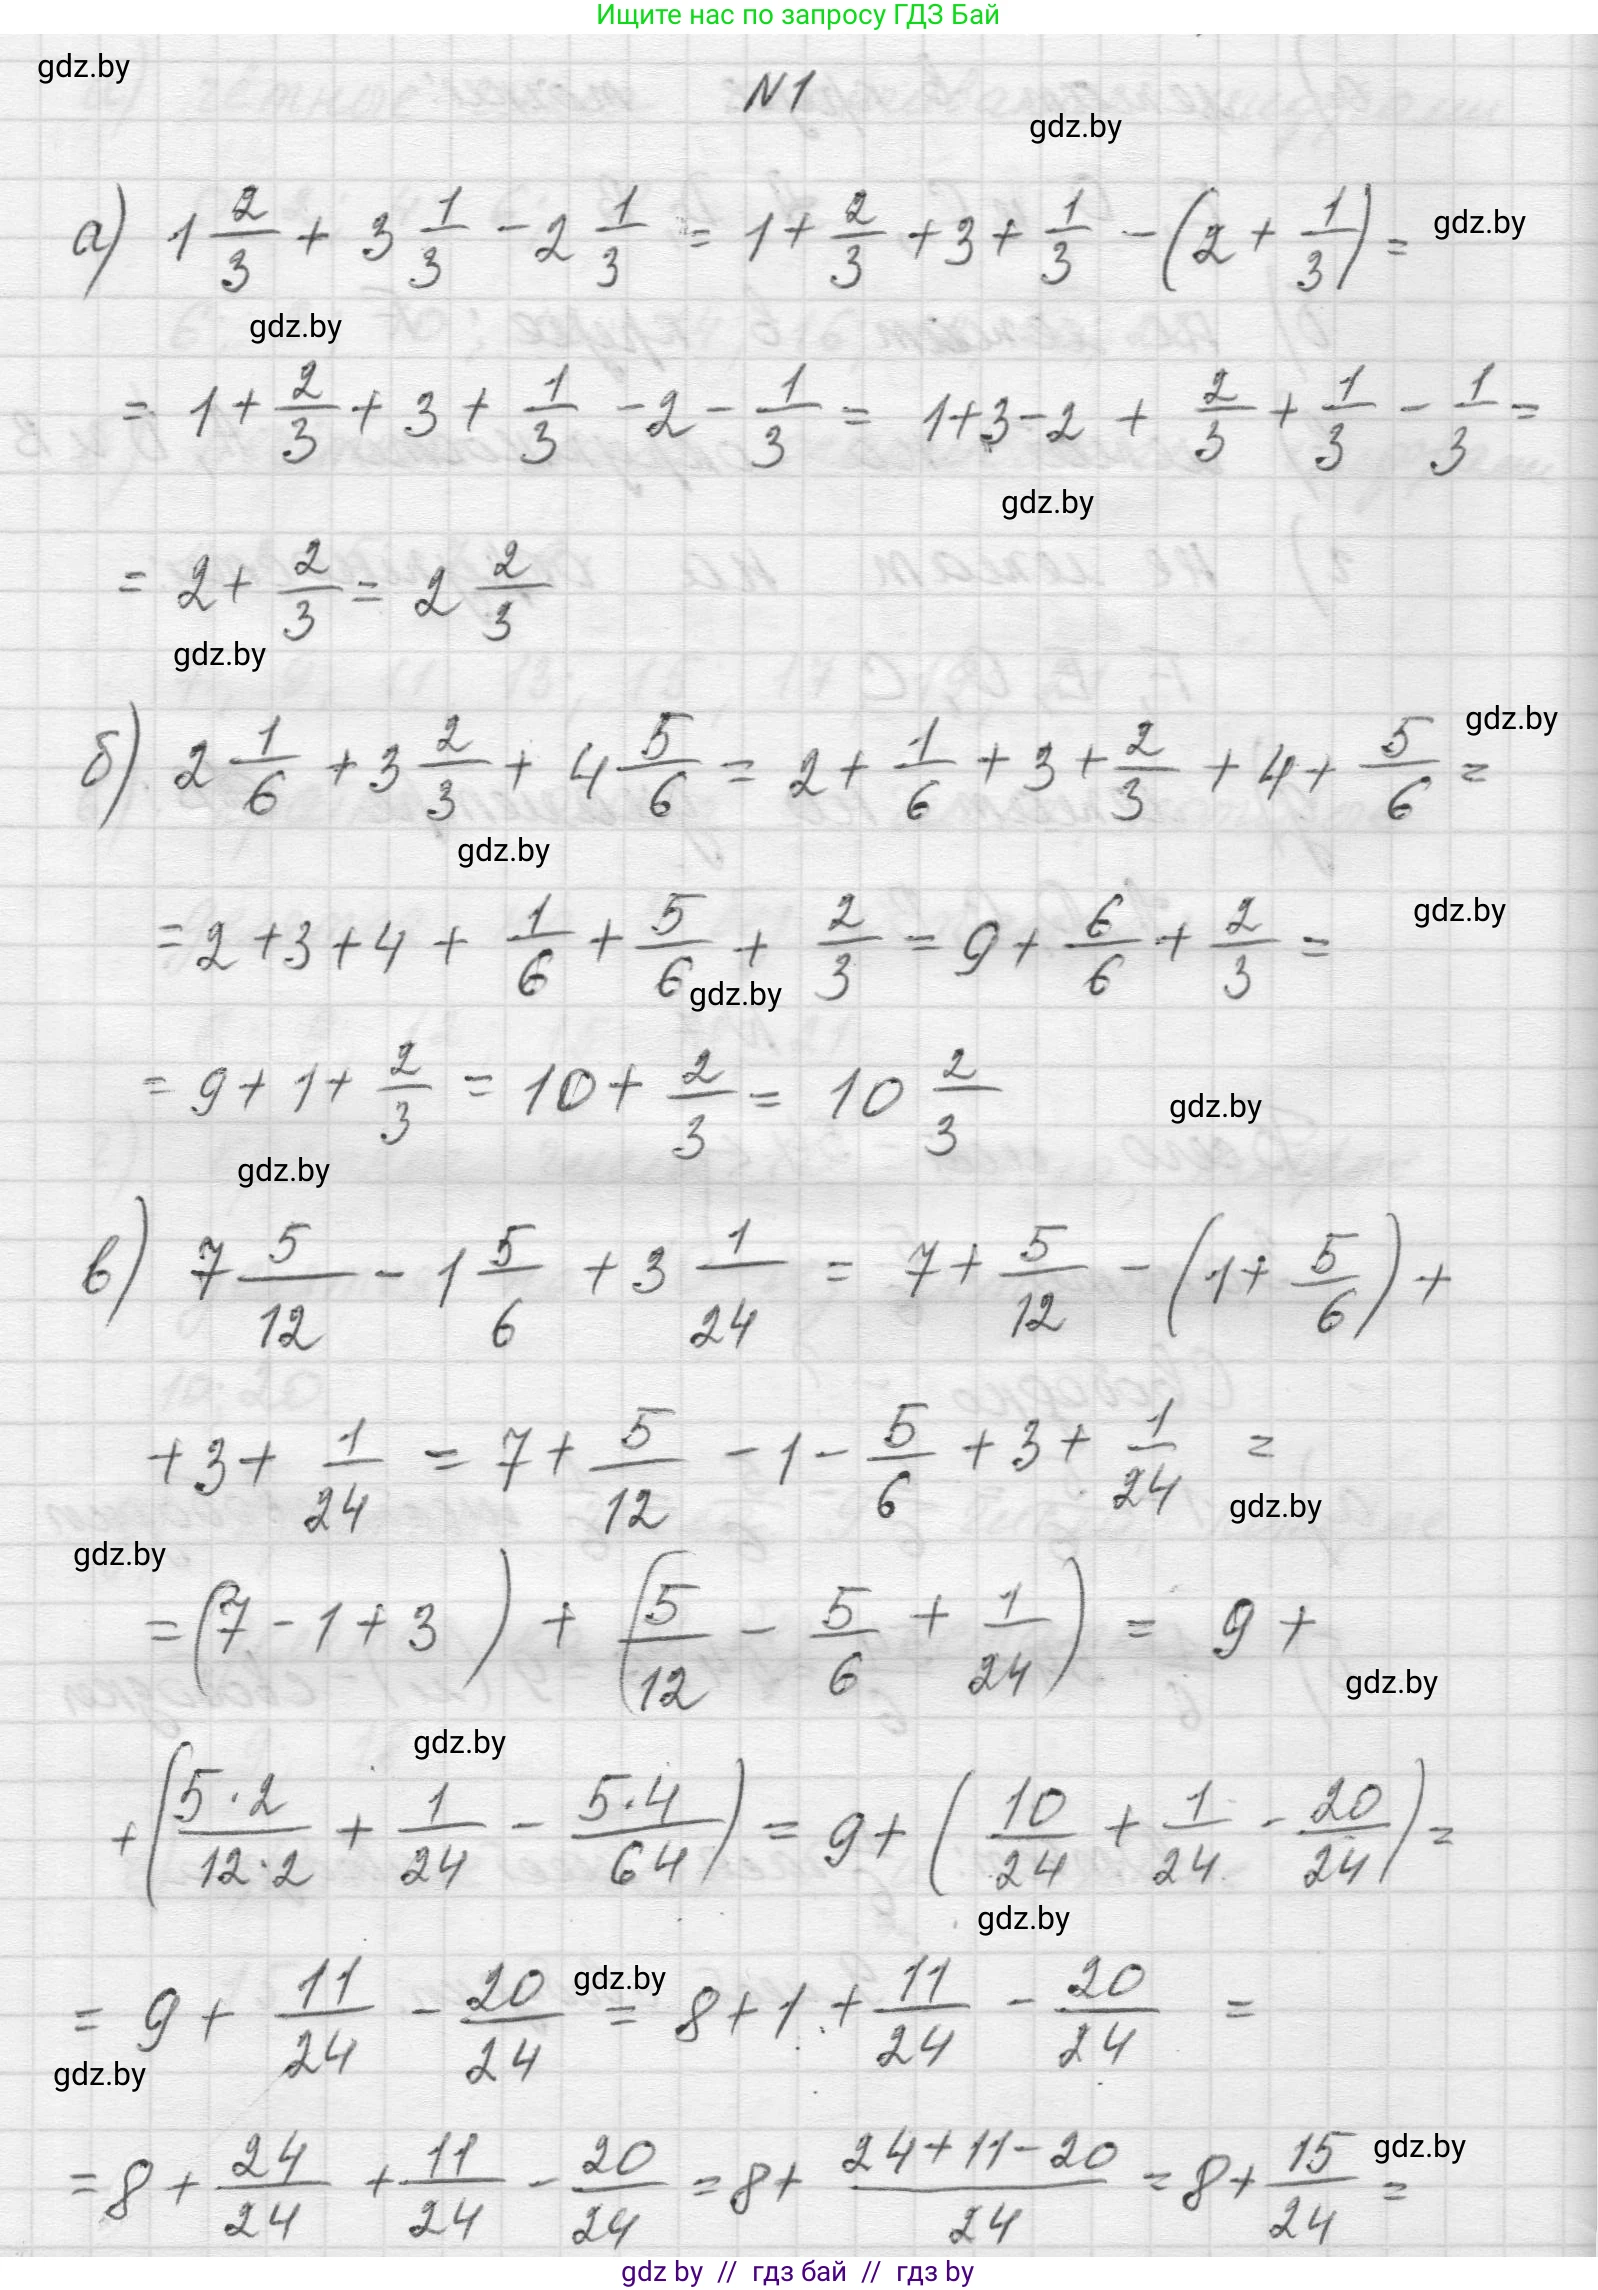 Ищите нас по запросу ГДЗ Бай
gdz.by
N1
gdz.by
а) 1 2/3 + 3 1/3 - 2 1/3 = 1 + 2/3 + 3 + 1/3 - (2 + 1/3) =
gdz.by
gdz.by
= 1 + 2/3 + 3 + 1/3 - 2 - 1/3 = 1+3-2 + 2/3 + 1/3 - 1/3 =
gdz.by
= 2 + 2/3 = 2 2/3
gdz.by
б) 2 1/6 + 3 2/3 + 4 5/6 = 2 + 1/6 + 3 + 2/3 + 4 + 5/6 =
gdz.by
gdz.by
= 2 + 3 + 4 + 1/6 + 5/6 + 2/3 = 9 + 6/6 + 2/3 =
gdz.by
gdz.by
= 9 + 1 + 2/3 = 10 + 2/3 = 10 2/3
gdz.by
gdz.by
в) 7 5/12 - 1 5/6 + 3 1/24 = 7 + 5/12 - (1 + 5/6) +
+ 3 + 1/24 = 7 + 5/12 - 1 - 5/6 + 3 + 1/24 =
gdz.by
gdz.by
= (7 - 1 + 3) + (5/12 - 5/6 + 1/24) = 9 +
gdz.by
gdz.by
+ (5·2/12·2 + 1/24 - 5·4/64) = 9 + (10/24 + 1/24 - 20/24) =
gdz.by
= 9 + 11/24 - 20/24 = 8 + 1 + 11/24 - 20/24 =
gdz.by
gdz.by
= 8 + 24/24 + 11/24 - 20/24 = 8 + 24+11-20/24 = 8 + 15/24 =
gdz.by
gdz by // гдз бай // гдз by